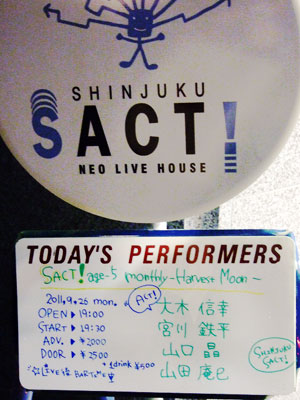 SHINJUKU
SACT!
NEO LIVE HOUSE
TODAY'S PERFORMERS
SACT! age-5 monthly -Harvest Moon-
2011.9.26 mon.
OPEN ▶ 19:00
START ▶ 19:30
ADV. ▶ ¥2000
DOOR ▶ ¥2500
+1drink ¥500
☆LIVE後 BARTIME
ACT!
大木 信幸
宮川 鉄平
山口 晶
山田 庵巳
SHINJUKU SACT!